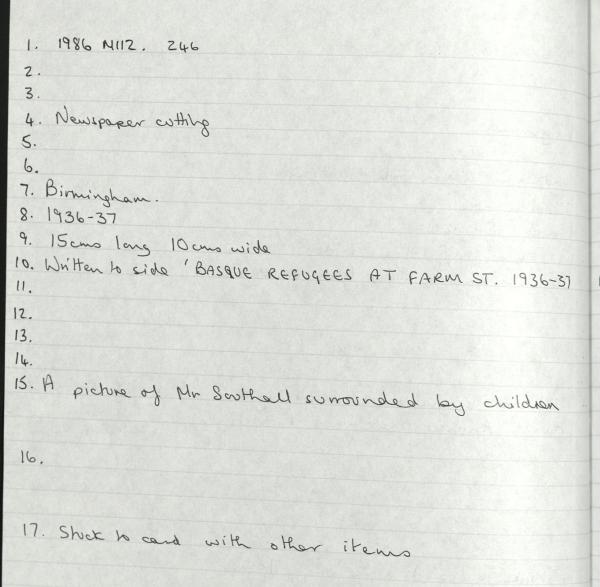 1. 1986 N112. 246
2.
3.
4. Newspaper cutting
5.
6.
7. Birmingham.
8. 1936-37
9. 15cms long 10cms wide
10. Written to side 'BASQUE REFUGEES AT FARM ST. 1936-37
11.
12.
13.
14.
15. A picture of Mr Southall surrounded by children
16.
17. Stuck to card with other items